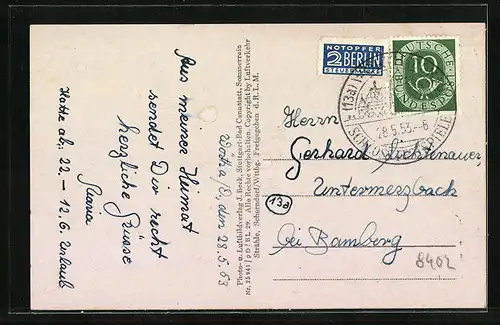 Aus meiner Heimat
sendet Dir recht
herzliche Grüsse
Maria
Hatte ab, 22. – 12.6. Urlaub
den 28.5.53
Photo- u. Luftbildverlag J. Beck, Stuttgart-Bad Cannstatt, Sommerrain
Alle Rechte vorbehalten. Copyright by Luftverkehr
Strähle, Schorndorf/Wttbg. Freigegeben d. R. L. M.
NOTOPFER
2 BERLIN
STEUERMARKE
DEUTSCHE
BUNDESPOST
10
28.5.53.-6
Herrn
Gerhard Lichtenauer,
Untermerzbach
13a
bei Bamberg
8402